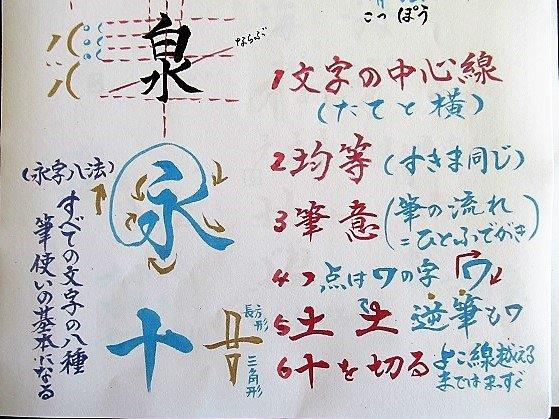 こっぽう
泉
ならぶ
1 文字の中心線
(たてと横)
2 均等(すきま同じ)
3 筆意(筆の流れ
=ひとふでがき)
4 つ 点はワの字「ワ」
5 土 土 逆筆もワ
6 十を切る よこ線越える
まではまっすぐ
(永字八法)
永
すべての文字の八種
筆使いの基本になる
十
長方形
三角形